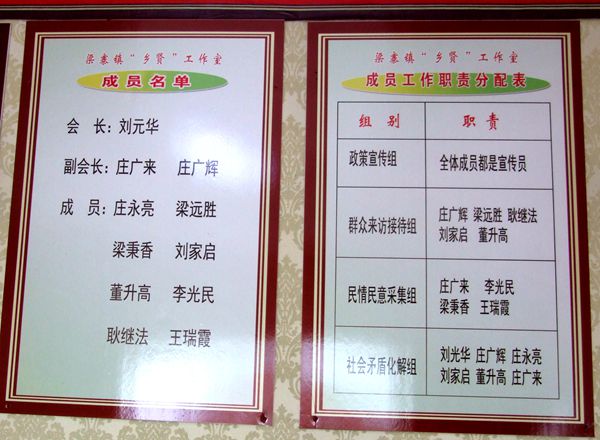 梁寨镇“乡贤”工作室
成员名单
会 长：刘元华
副会长：庄广来 庄广辉
成 员：庄永亮 梁远胜
梁秉香 刘家启
董升高 李光民
耿继法 王瑞霞
梁寨镇“乡贤”工作室
成员工作职责分配表
组 别 职 责
政策宣传组 全体成员都是宣传员
群众来访接待组 庄广辉 梁远胜 耿继法
刘家启 董升高
民情民意采集组 庄广来 李光民
梁秉香 王瑞霞
社会矛盾化解组 刘光华 庄广辉 庄永亮
刘家启 董升高 庄广来